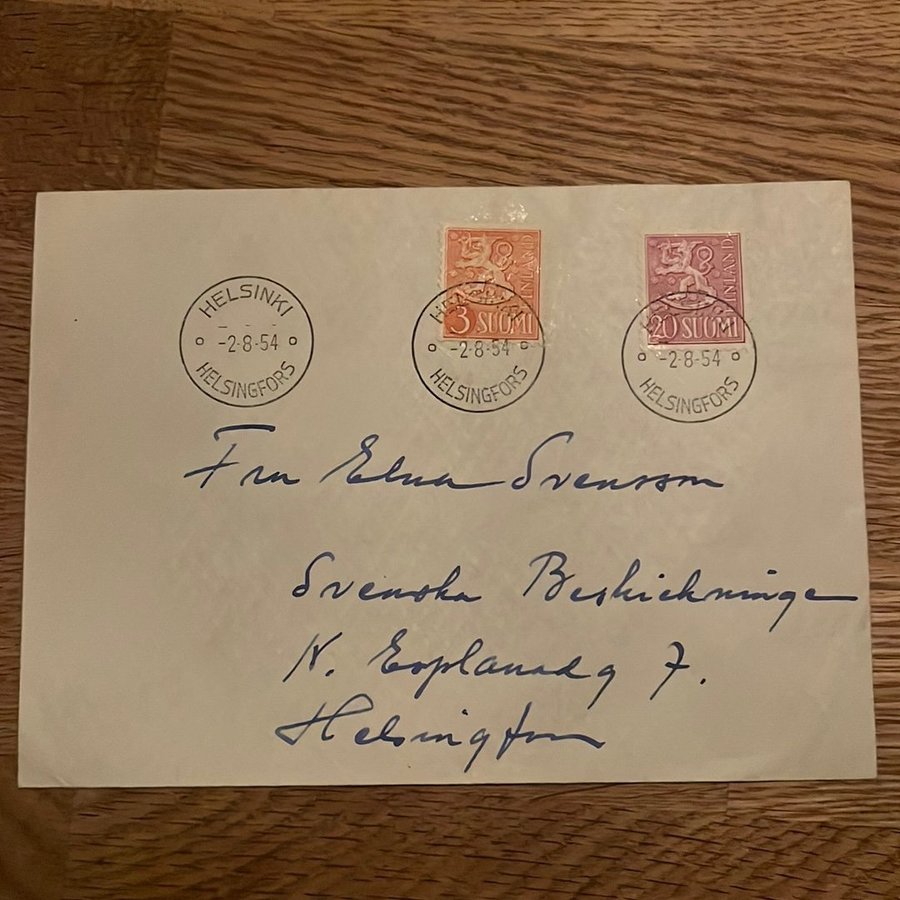 FINLAND
3 SUOMI
FINLAND
20 SUOMI
HELSINKI
-2-8-54
HELSINGFORS
HELSINKI
-2-8-54
HELSINGFORS
HELSINKI
-2-8-54
HELSINGFORS
Fru Elna Svensson
Svenska Beskickningen
N. Esplanadg 7.
Helsingfors